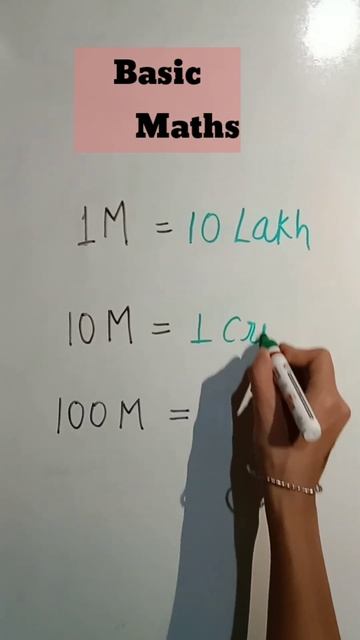 Basic
Maths
1M = 10 Lakh
10 M = 1 Cr
100 M =